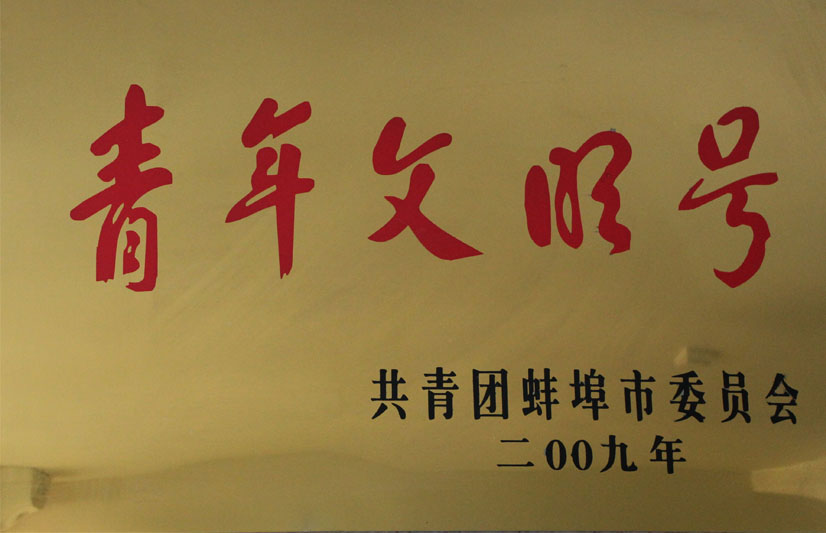 青年文明号
共青团蚌埠市委员会
二00九年